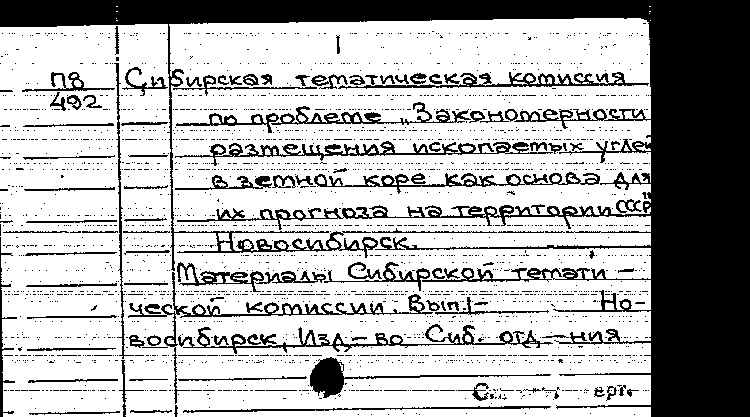 П8 Сибирская тематическая комиссия
492
по проблеме „Закономерности
размещения ископаемых углей
в земной коре как основа для
их прогноза на территории СССР"
Новосибирск.
Материалы Сибирской темати-
ческой комиссии. Вып.1- Но-
восибирск, Изд-во Сиб. отд-ния